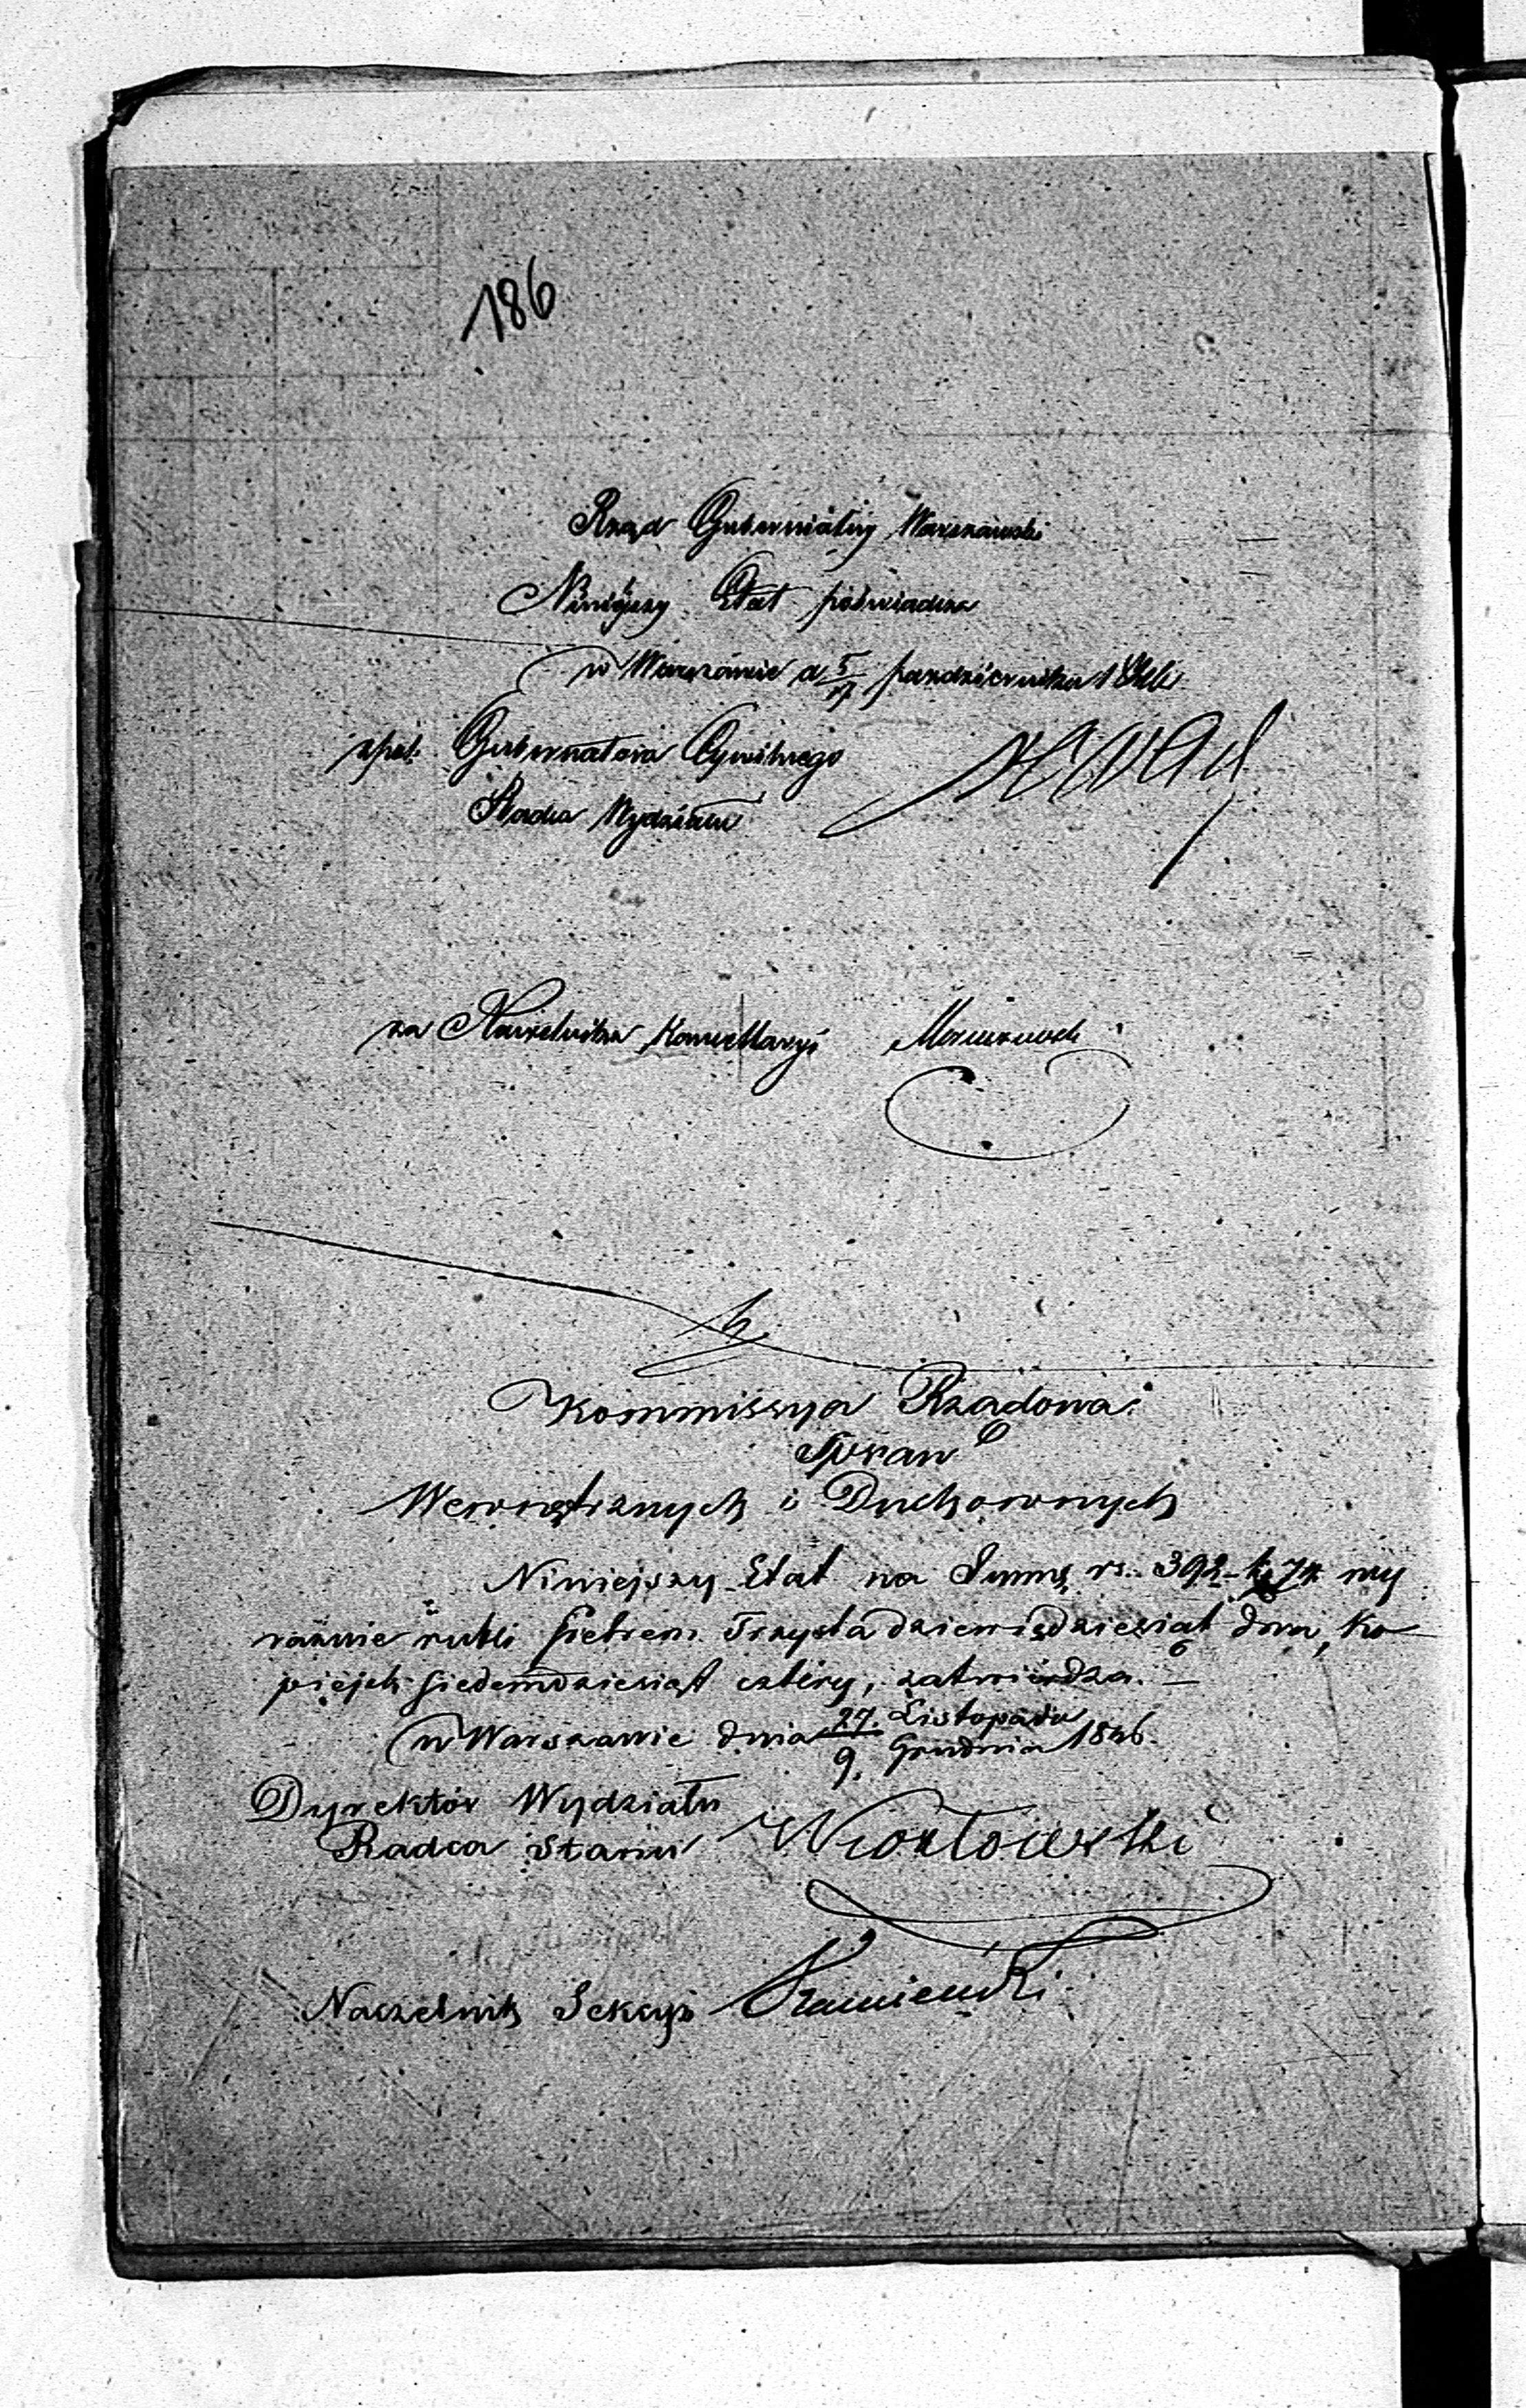 186
Rząd Gubernialny Warszawski
Niniejszy Etat poświadcza
w Warszawie d 5/17 pazdziernika 1846
Gubernatora Cywilnego
Radca Wydziału
za Naczelnika Kancellaryi
Kommissya Rządowa
Spraw
Wewnętrznych i Duchownych
Niniejszy Etat na Summę rs. 392 k. 74 wy
raznie rubli srebrem Trzysta dziewięćdziesiąt dwa, ko
piejek siedemdziesiąt cztery, zatwierdza. —
w Warszawie dnia 27. Listopada / 9. Grudnia 1846.
Dyrektor Wydziału
Radca Stanu
Naczelnik Sekcyi Kamieński